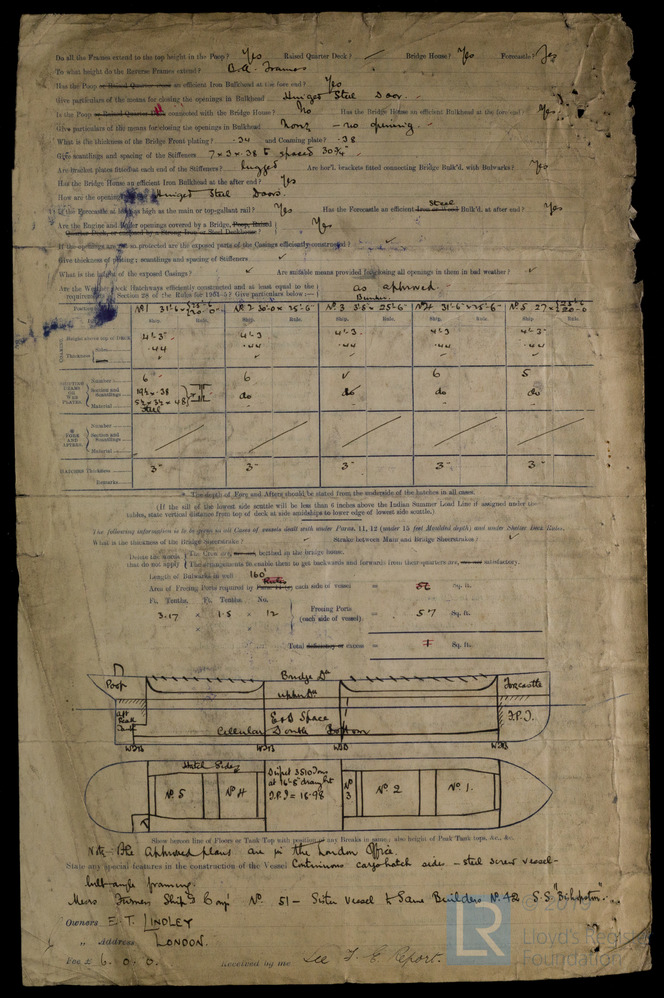 Do all the Frames extend to the top height in the Poop? Yes Raised Quarter Deck? Bridge House? Yes Forecastle? Yes
To what height do the Reverse Frames extend? B.A. Frames
Has the Poop or Raised Quarter Deck an efficient Iron Bulkhead at the fore end? Yes
Give particulars of the means for closing the openings in Bulkhead Hinged Steel Door.
Is the Poop or Raised Quarter Deck connected with the Bridge House? No Has the Bridge House an efficient Bulkhead at the fore end? Yes
Give particulars of the means for closing the openings in Bulkhead None - no opening
What is the thickness of the Bridge Front plating? .34 and Coaming plate? .38
Give scantlings and spacing of the Stiffeners 7 x 3 x .38 spaced 30¾"
Are bracket plates fitted at each end of the Stiffeners? Lugged Are hor'l. brackets fitted connecting Bridge Bulk'd. with Bulwarks? Yes
Has the Bridge House an efficient Iron Bulkhead at the after end? Yes
How are the openings Hinged Steel Doors.
Is the Forecastle at least as high as the main or top-gallant rail? Yes Has the Forecastle an efficient Steel Iron or Wood Bulk'd. at after end? Yes
Are the Engine and Boiler openings covered by a Bridge, Poop, Raised Yes
Quarter Deck, or
If the openings are not so protected are the exposed parts of the Casings efficiently constructed?
Give thickness of plating; scantlings and spacing of Stiffeners
What is the height of the exposed Casings? Are suitable means provided for closing all openings in them in bad weather?
Are the Weather Deck Hatchways efficiently constructed and at least equal to the as approved.
requirements Section 28 of the Rules for 1904-5? Give particulars below:— Bunker.
Nº 1 31'-6 x Nº 2 30'-0 x 25'-6 Nº 3 25'-6 Nº 4 31'-6 x 25'-6 Nº 5 27
Ship. Rule. Ship. Rule. Ship. Rule. Ship. Rule. Ship. Rule.
Height above top of Deck 4'-3" 4'-3 4'-3 4'-3 4'-3
Thickness .44 .44 .44 .44 .44
Number 6 6 6 5
Section and Scantlings 5½ x 3½ x .48 do do do do
Material Steel
FORE AND AFTERS. Number
Section and Scantlings
Material
HATCHES Thickness 3" 3" 3" 3" 3"
Remarks
* The depth of Fore and Afters should be stated from the underside of the hatches in all cases.
(If the sill of the lowest side scuttle will be less than 6 inches above the Indian Summer Load Line if assigned under the
tables, state vertical distance from top of deck at side amidships to lower edge of lowest side scuttle.)
The following information is to be given in all Cases of vessels dealt with under Paras. 11, 12 (under 15 feet Moulded depth) and under Shelter Deck Rules.
What is the thickness of the Bridge Sheerstrake? Strake between Main and Bridge Sheerstrakes?
Delete the words The Crew are berthed in the bridge house.
that do not apply The arrangements to enable them to get backwards and forwards from their quarters are, satisfactory.
Length of Bulwarks in well 160
Area of Freeing Ports required by Rules each side of vessel = Sq. ft.
Ft. Tenths. Ft. Tenths. No.
3.17 x 1.5 x 12 Freeing Ports (each side of vessel) = 57 Sq. ft.
Total deficiency or excess = Sq. ft.
Poop Bridge Dk Forecastle
upper Dk
Aft Peak Tank E & B Space F.P.T.
Cellular Double Bottom
WTB WTB WTB WTB
Hatch Sides
Nº 5 Nº 4 3510 Tons at 16'-8" draught T.P.I = 16.98 Nº 3 Nº 2 Nº 1.
Show bottom line of Floors or Tank Top with position of any Breaks in same; also height of Peak Tank tops, &c., &c.
Note. The approved plans are in the London Office
State any special features in the construction of the Vessel Continuous cargo hatch sides - steel screw vessel -
bulb angle framing.
Nº 51 - Sister vessel to Same Builders Nº 42 S.S. "Bishopston"
Owners E. T. LINDLEY
" Address LONDON.
Fee £ 6. 0. 0. Received by me See F. E. Report.
LR
Lloyd's Register
Foundation